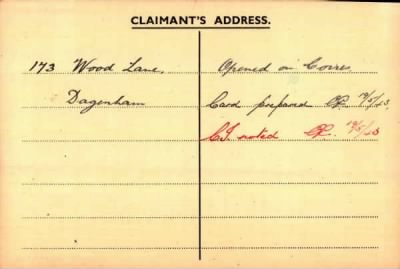 CLAIMANT'S ADDRESS.
173 Wood Lane,
Dagenham
Opened on Corres
Card prepared
C.I. noted